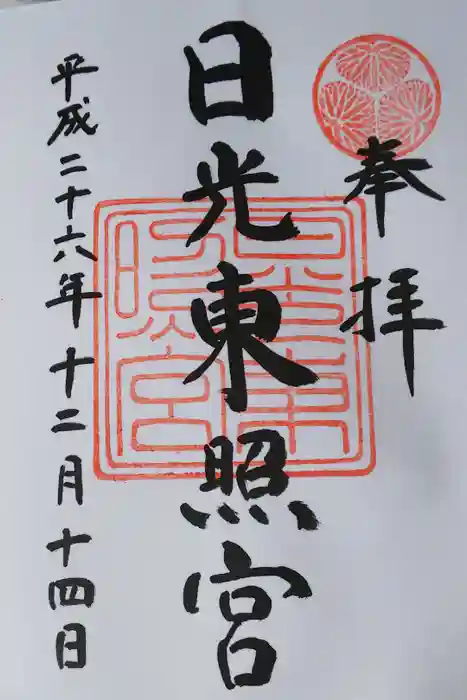 奉拝
日光東照宮
平成二十六年十二月十四日